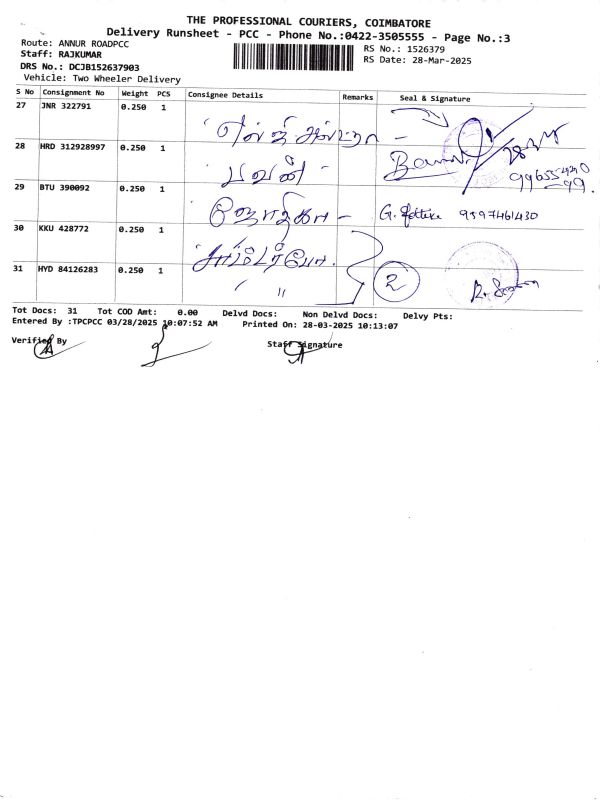 THE PROFESSIONAL COURIERS, COIMBATORE
Delivery Runsheet - PCC - Phone No.:0422-3505555 - Page No.:3
Route: ANNUR ROADPCC
RS No.: 1526379
Staff: RAJKUMAR
RS Date: 28-Mar-2025
DRS No.: DCJB152637903
Vehicle: Two Wheeler Delivery
S No Consignment No Weight PCS Consignee Details Remarks Seal & Signature
27 JNR 322791 0.250 1
28 HRD 312928997 0.250 1 பவன் -
29 BTU 390092 0.250 1 - G. 9597461430
30 KKU 428772 0.250 1
31 HYD 84126283 0.250 1 " 2
Tot Docs: 31 Tot COD Amt: 0.00 Delvd Docs: Non Delvd Docs: Delvy Pts:
Entered By :TPCPCC 03/28/2025 10:07:52 AM Printed On: 28-03-2025 10:13:07
Verified By Staff Signature